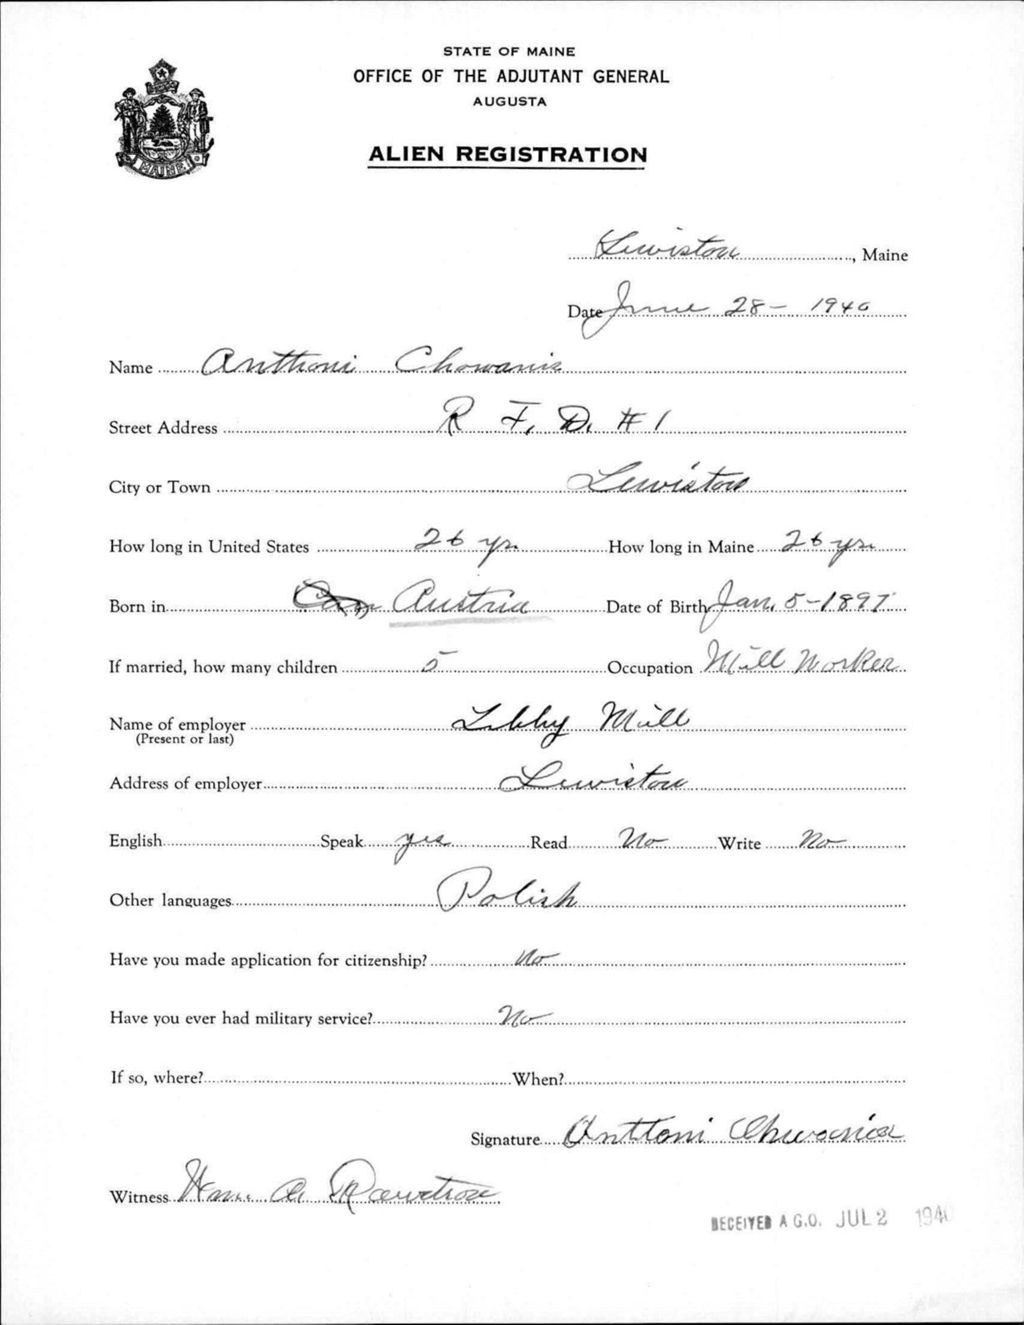 STATE OF MAINE
OFFICE OF THE ADJUTANT GENERAL
AUGUSTA
ALIEN REGISTRATION
MAINE
Lewiston, Maine
Date June 28 - 1940
Name Anthoni Chowanis
Street Address R. F. D. #1
City or Town Lewiston
How long in United States 26 yr. How long in Maine 26 yrs
Born in Austria Date of Birth Jan. 5-1897
If married, how many children 5 Occupation Mill Worker
Name of employer Libby Mill
(Present or last)
Address of employer Lewiston
English Speak yes Read No Write No
Other languages Polish
Have you made application for citizenship? No
Have you ever had military service? No
If so, where? When?
Signature Anttoni
Witness Wm. A.
RECEIVED A.G.O. JUL 2 1940